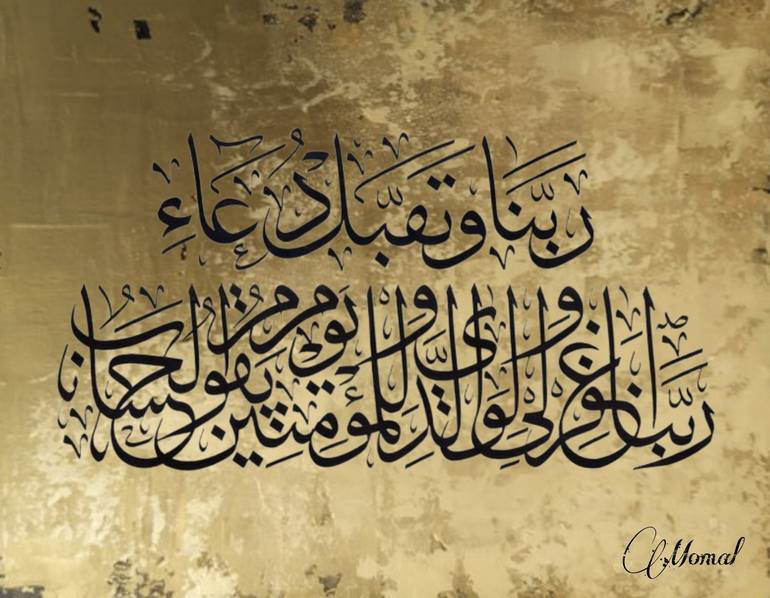 رَبَّنَا وَتَقَبَّلْ دُعَاءِ
رَبَّنَا اغْفِرْ لِي وَلِوَالِدَيَّ وَلِلْمُؤْمِنِينَ يَوْمَ يَقُومُ الْحِسَابُ
Momal